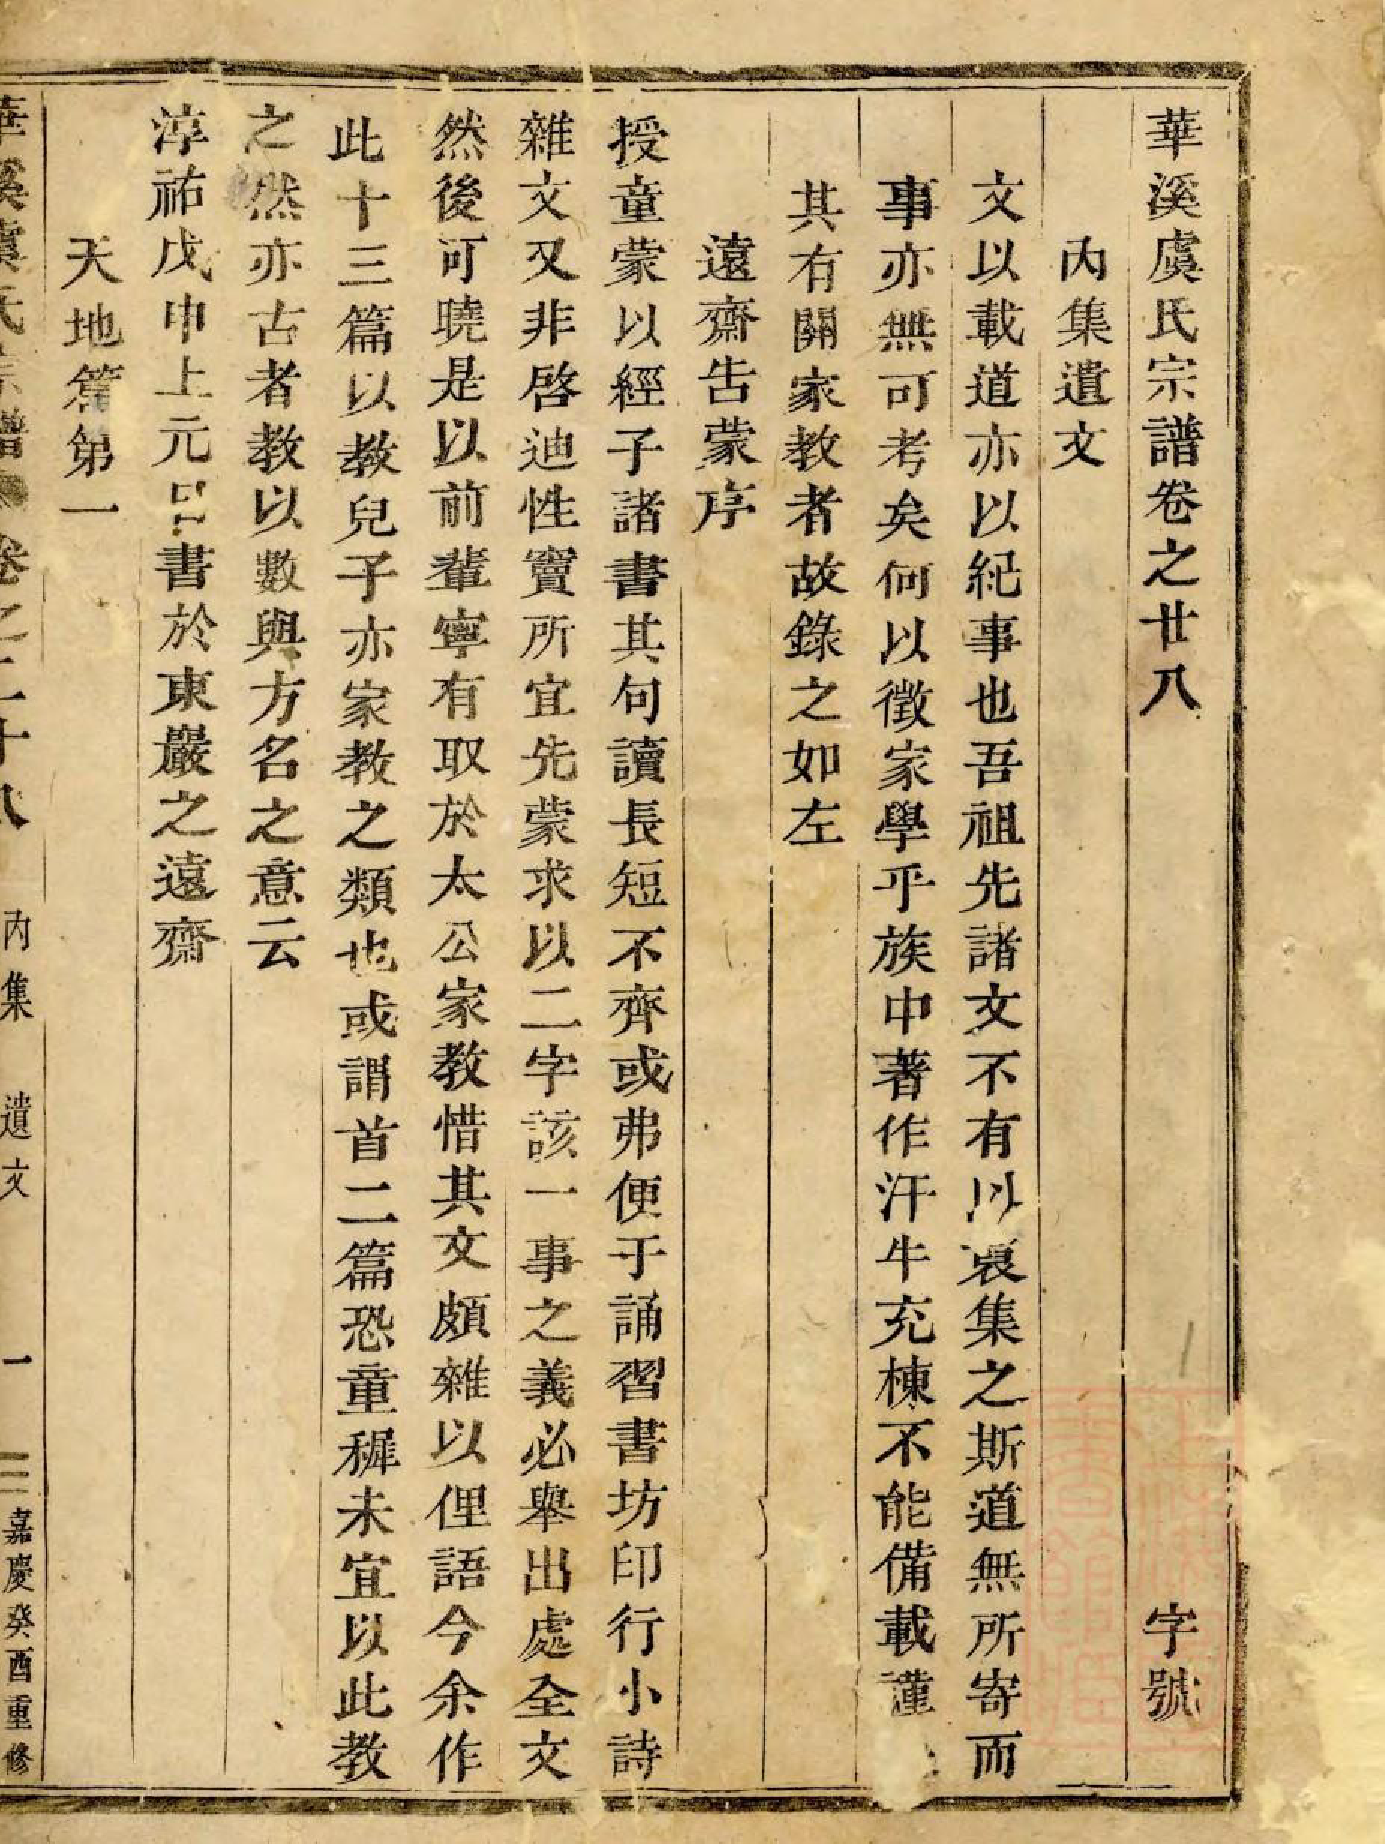 華溪虞氏宗譜卷之廿八 字號
內集遺文
文以載道亦以紀事也吾祖先諸文不有以裒集之斯道無所寄而
事亦無可考矣何以徵家學乎族中著作汗牛充棟不能備載謹
其有關家教者故錄之如左
遠齋告蒙序
授童蒙以經子諸書其句讀長短不齊或弗便于誦習書坊印行小詩
雜文又非啓迪性竇所宜先蒙求以二字該一事之義必舉出處全文
然後可曉是以前輩寧有取於太公家教惜其文頗雜以俚語今余作
此十三篇以教兒子亦家教之類也或謂首二篇恐童穉未宜以此教
之然亦古者教以數與方名之意云
淳祐戊申上元日書於東嚴之遠齋
天地篇第一
華溪虞氏宗譜 卷之二十八 內集 遺文 一 嘉慶癸酉重修